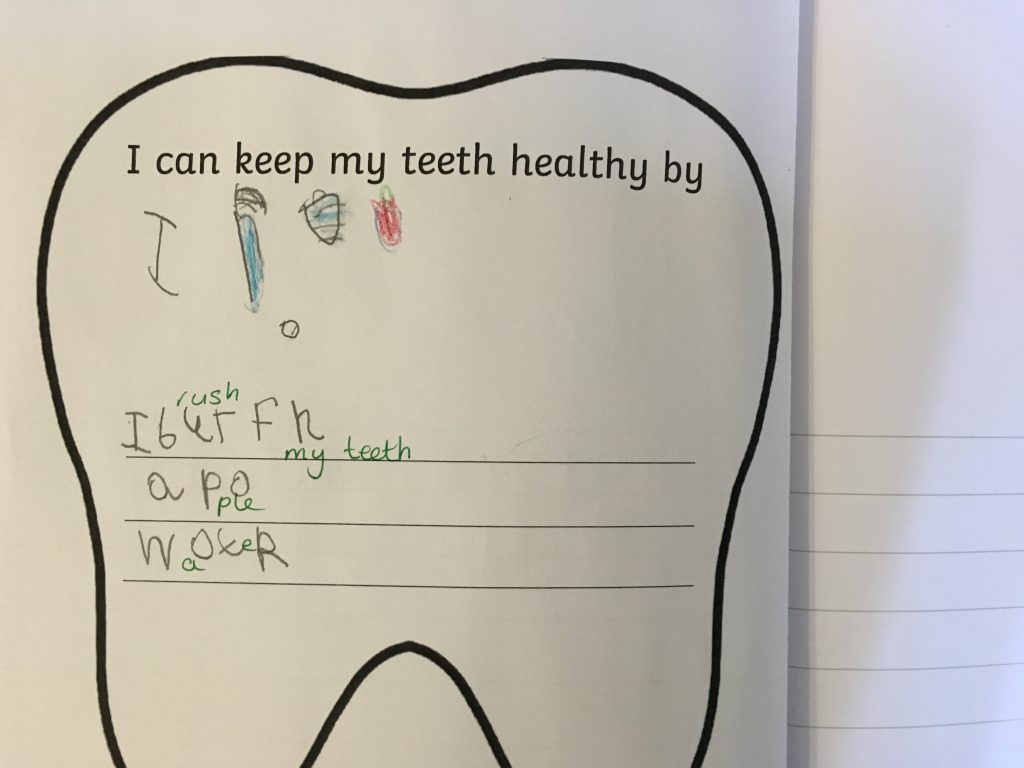 I can keep my teeth healthy by
I
rush
I b
my teeth
a po
ple
W o e R
a